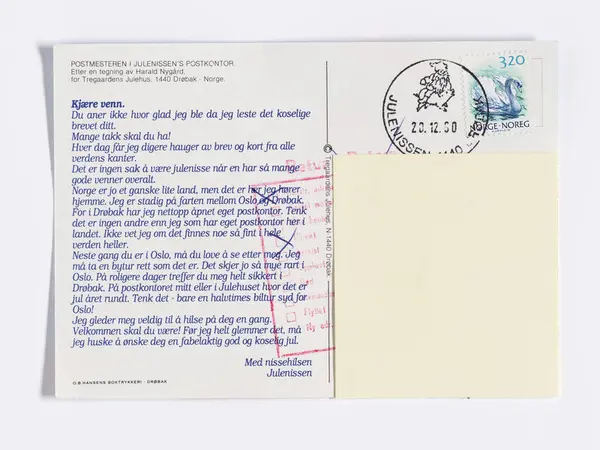 POSTMESTEREN I JULENISSEN'S POSTKONTOR.
Etter en tegning av Harald Nygård,
for Tregaardens Julehus. 1440 Drøbak - Norge.
Kjære venn.
Du aner ikke hvor glad jeg ble da jeg leste det koselige
brevet ditt.
Mange takk skal du ha!
Hver dag får jeg digere hauger av brev og kort fra alle
verdens kanter.
Det er ingen sak å være julenisse når en har så mange
gode venner overalt.
Norge er jo et ganske lite land, men det er her jeg hører
hjemme. Jeg er stadig på farten mellom Oslo og Drøbak.
For i Drøbak har jeg nettopp åpnet eget postkontor. Tenk
det er ingen andre enn jeg som har eget postkontor her i
landet. Ikke vet jeg om det finnes noe så fint i hele
verden heller.
Neste gang du er i Oslo, må du love å se etter meg. Jeg
må ta en bytur rett som det er. Det skjer jo så mye rart i
Oslo. På roligere dager treffer du meg helt sikkert i
Drøbak. På postkontoret mitt eller i Julehuset hvor det er
jul året rundt. Tenk det - bare en halvtimes biltur syd for
Oslo!
Jeg gleder meg veldig til å hilse på deg en gang.
Velkommen skal du være! Før jeg helt glemmer det, må
jeg huske å ønske deg en fabelaktig god og koselig jul.
Med nissehilsen
Julenissen
O.B. HANSENS BOKTRYKKERI - DRØBAK
© Tregaardens Julehus, N 1440 Drøbak
Retur
Flyttet
Ny adr.
JULENISSEN 1440
20.12.90
3 20
NORGE·NOREG